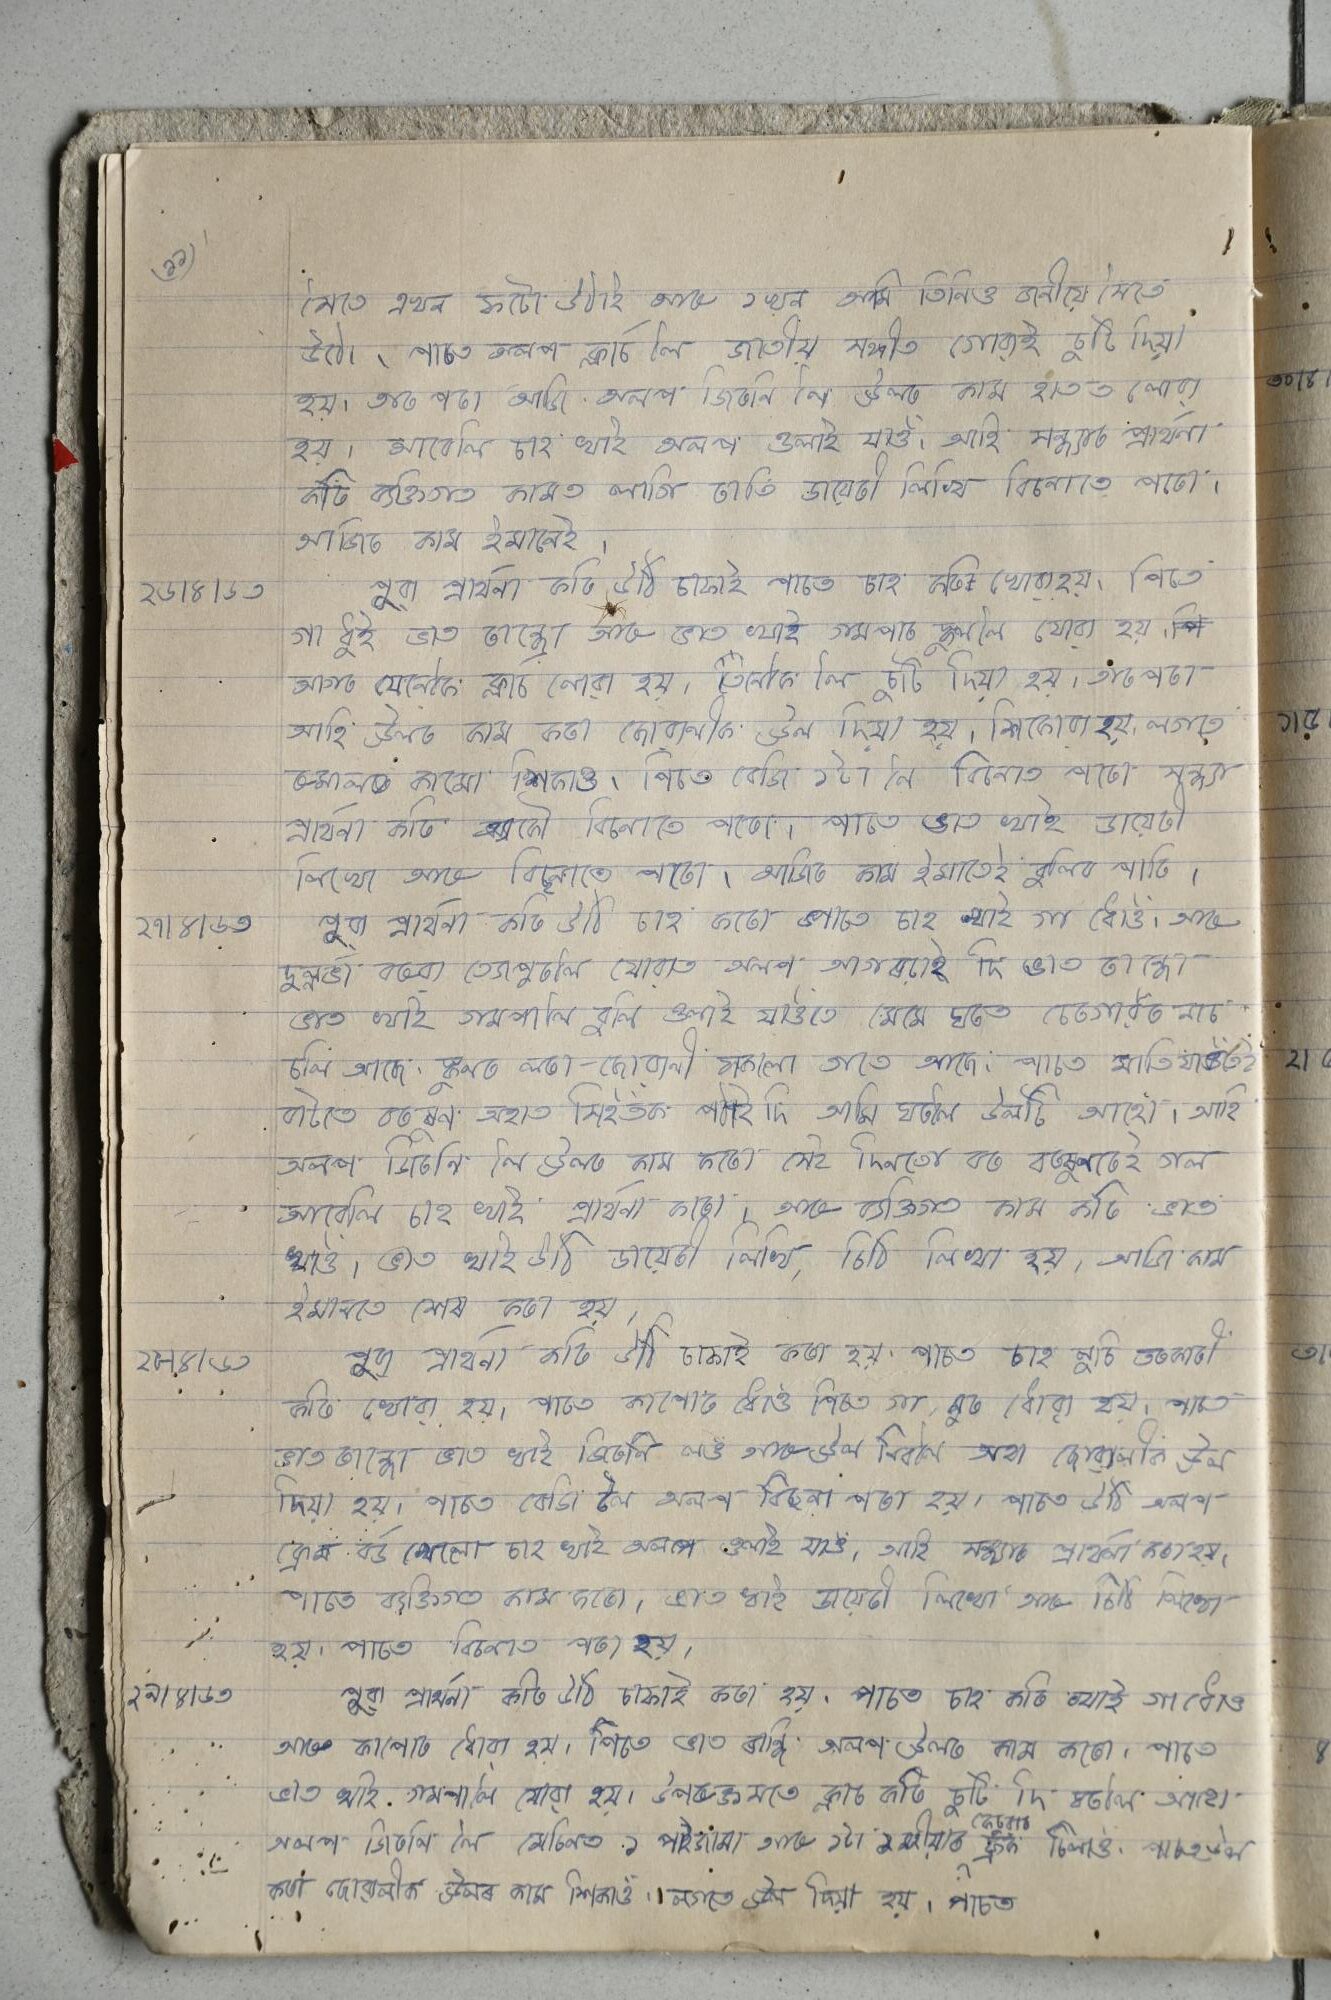 (২২)
সৈতে এখন ফটো উঠাই আৰু ১খন আমি তিনিও বনীয়ে সৈতে
উঠো। পাচত অলপ ক্লাচ লৈ জাতীয় সঙ্গীত গোৱাই চুটি দিয়া
হয়। তাৰ পৰা আহি অলপ জিৰনি লৈ উলৰ কাম হাতত লোৱা
হয়। আবেলি চাহ খাই অলপ ওলাই যাওঁ। আহি সন্ধ্যাৰ প্ৰাৰ্থনা
কৰি ব্যক্তিগত কামত লাগি ৰাতি ডায়েৰী লিখি বিচনাতে পৰো।
আজিৰ কাম ইমানেই।
২৬।৪।৬৩ পুৱা প্ৰাৰ্থনা কৰি উঠি চাফাই পাচত চাহ কৰি খোৱা হয়। পিচে
গা ধুই ভাত ৰান্ধো আৰু ভাত খাই গমপাৰ স্কুললৈ যোৱা হয়।
আগৰ যেনেকৈ ক্লাচ লোৱা হয়। তেনেকৈ লৈ চুটি দিয়া হয়। তাৰ পৰা
আহি উলৰ কাম কৰা ছোৱালীক উল দিয়া হয়। শিকোৱা হয়। লগতে
ৰুমালৰ কামো শিকাও। পিচত বেজি ১টা লৈ বিচনাত পৰো সন্ধ্যা
প্ৰাৰ্থনা কৰি বিচনাতে পৰো। পাচত ভাত খাই ডায়েৰী
লিখো আৰু বিচনাতে পৰো। আজিৰ কাম ইমানেই বুলিব পাৰি।
২৭।৪।৬৩ পুৱা প্ৰাৰ্থনা কৰি উঠি চাহ কৰো পাচত চাহ খাই গা ধোওঁ। আৰু
বৰুৱা তেজপুৰলৈ যোৱাত অলপ আগবঢ়াই দি ভাত ৰান্ধো
ভাত খাই গমপালৈ বুলি ওলাই যাওঁতে মেমে ঘৰতে
চলি আছে। স্কুলৰ লৰা-ছোৱালী সকলো তাতে আছে। পাচত মাতি
বাটতে বৰষুণ অহাত সিহঁতক পঠাই দি আমি ঘৰলৈ উলটি আহো। আহি
অলপ জিৰনি লৈ উলৰ কাম কৰো সেই দিনতো বৰ বৰষুণতেই গল
আবেলি চাহ খাই প্ৰাৰ্থনা কৰো। আৰু ব্যক্তিগত কাম কৰি ভাত
খাওঁ। ভাত খাই উঠি ডায়েৰী লিখি, চিঠি লিখা হয়। আজি কাম
ইমানতে শেষ কৰা হয়।
২৮।৪।৬৩ পুৱা প্ৰাৰ্থনা কৰি উঠি চাফাই কৰা হয়। পাচত চাহ লুচি তৰকাৰী
কৰি খোৱা হয়। পাচত কাপোৰ ধোওঁ পিচত গা, মুৰ ধোৱা হয়। পাচত
ভাত ৰান্ধো ভাত খাই জিৰনি লওঁ আৰু উল নিবলৈ অহা ছোৱালীক উল
দিয়া হয়। পাচত বেজি লৈ অলপ বিচনা পৰা হয়। পাচত উঠি অলপ
কেৰম বৰ্ড খেলো চাহ খাই অলপ ওলাই যাওঁ। আহি সন্ধ্যাৰ প্ৰাৰ্থনা কৰা হয়।
পাচত ব্যক্তিগত কাম কৰো। ভাত খাই ডায়েৰী লিখো আৰু চিঠি লিখো
হয়। পাচত বিচনাত পৰা হয়।
২৯।৪।৬৩ পুৱা প্ৰাৰ্থনা কৰি উঠি চাফাই কৰা হয়। পাচত চাহ কৰি খাই গা ধোওঁ
আৰু কাপোৰ ধোৱা হয়। পিচত ভাত ৰান্ধি অলপ উলৰ কাম কৰো। পাচত
ভাত খাই গমপালৈ যোৱা হয়। উপৰুক্তমতে ক্লাচ কৰি চুটি দি ঘৰলৈ আহো
অলপ জিৰনি লৈ মেচিনত ১ পাইজামা আৰু ১টা ফ্ৰক চিলাওঁ। পাচত উল
কৰা ছোৱালীক উলৰ কাম শিকাওঁ। লগতে উল দিয়া হয়। পাচত